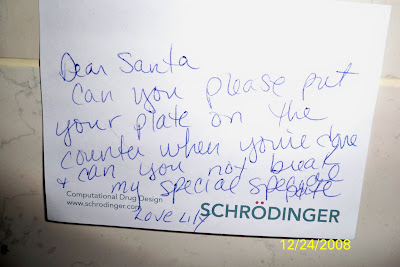 Dear Santa
Can you please put
your plate on the
counter when you're done
+ can you not break
my special
Computational Drug Design
www.schrodinger.com
Love Lily
SCHRÖDINGER
12/24/2008